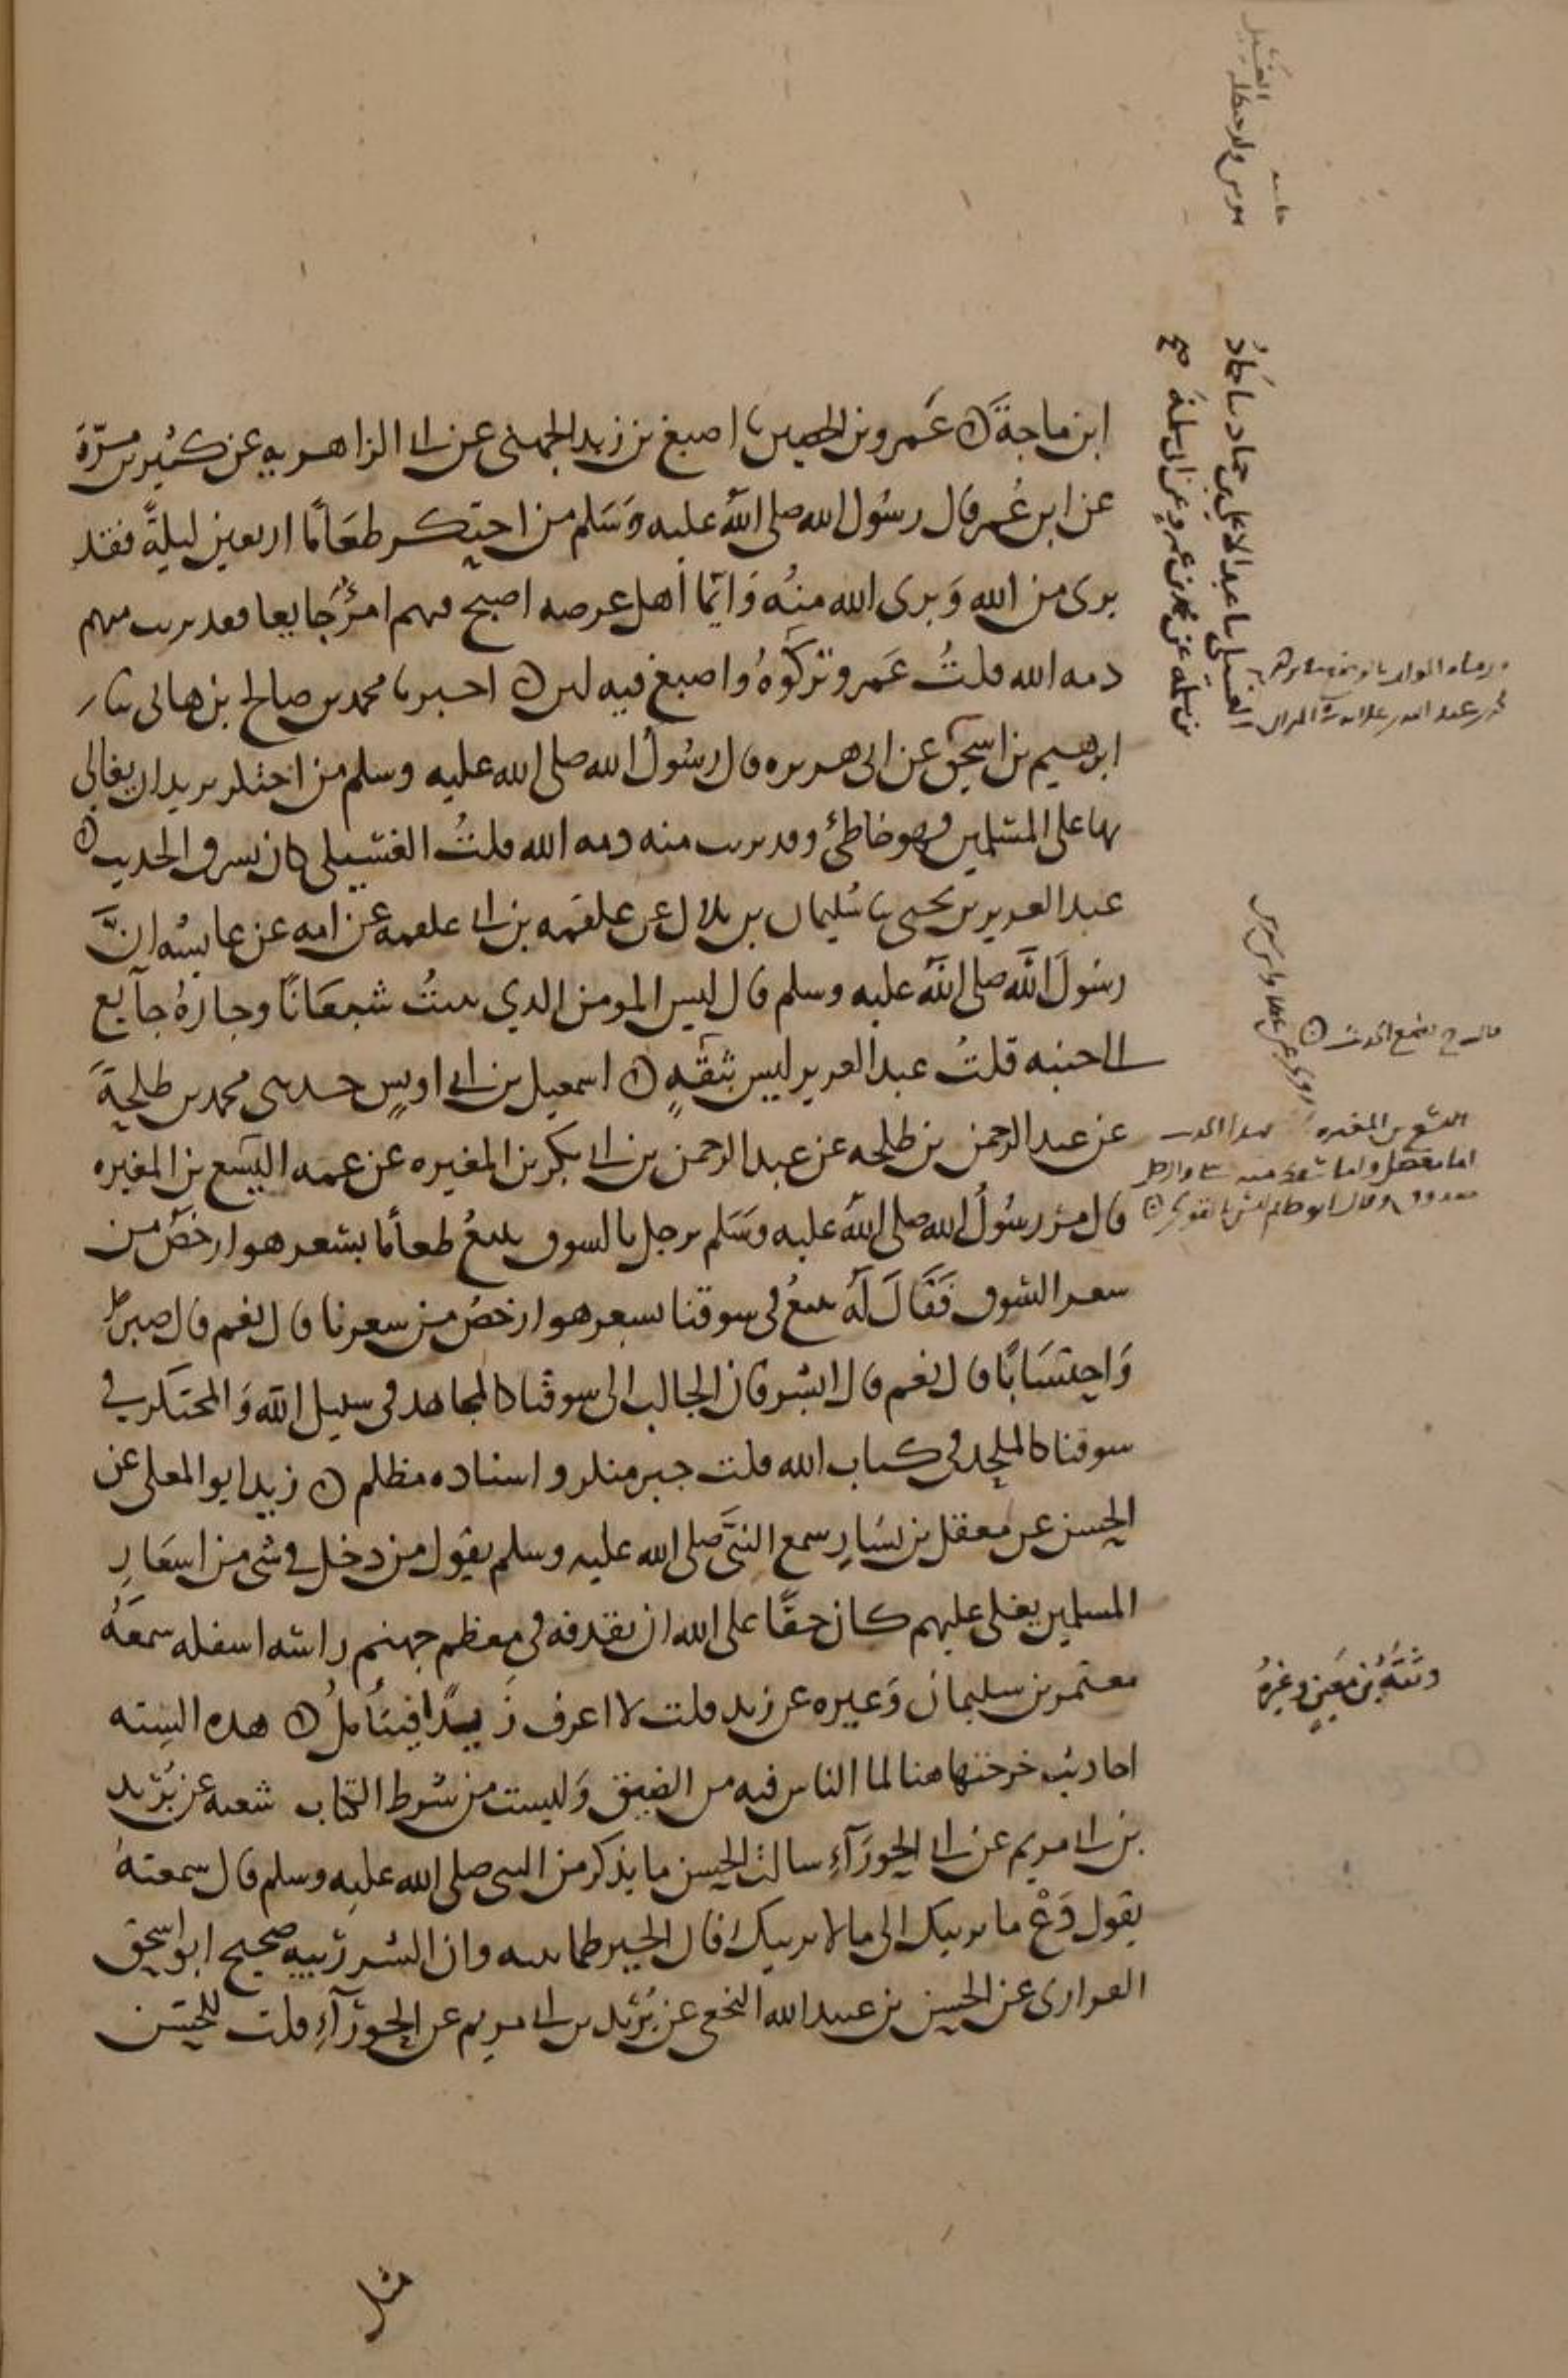 ابن ماجة ن عَمرو بن الحصين نا اصبغ بن زيد الجهني عن ابي الزاهرية عن كثير بن مرّة
عن ابن عُمر قال رسُول الله صلى الله عليه وَسَلم من احتكر طعَامًا اربعين ليلةً فقد
برى من الله وَبرى الله منهُ وَايّما أهل عرصه اصبح فيهم امرُؤٌ جَايعا فقد بريت منهم
ذمه الله قلتُ عَمرو تركوهُ واصبغ فيه لين ن اخبرنا محمد بن صالح بن هانى نا
ابرهيم بن اسحق عن ابى هريره قال رسُول الله صلى الله عليه وسلم من احتكر يريد ان يغالي
بها على المسْلمين فهو خاطئ وقد بريت منه ذمه الله قلتُ الغسيلي كان يسرق الحديث ن
عبد العزيز بن يحيى نا سُليمان بن بلال عن علقمه بن ابي علقمه عن امه عن عايشه انَّ
رسُولَ اللَّه صلى اللَّه عليه وسلم قال ليس المومن الذي يبيتُ شبعَانًا وجارهُ جآيع
الى جنبه قلتُ عبد العزيز ليس بثقهٍ ن اسمعيل بن ابي اويسٍ حدثنى محمد بن طلحةَ
عن عبد الرحمن بن طلحه عن عبد الرحمن بن ابي بكر بن المغيره عن عمه اليَسَع بن المغيره
قال مرّ رسُولُ الله صلى اللهُ عليه وَسَلم برجل بالسوق يبيعُ طعامًا بسعر هو ارخصُ من
سعر السُوق فَقَالَ لَهُ تبيعُ فى سوقنا بسعر هو ارخصُ من سعرنا قال نعم قال صبرًا
وَاحتسَابًا قال نعم قال ابشر فان الجالب الى سوقنا كالمجاهد فى سبيل الله وَالمحتكر في
سوقنا كالملحد فى كتاب الله قلت خبر منكر واسناده مظلم ن زيد ابو المعلى عن
الحسن عن معقل بن يسَارٍ سمع النبيَّ صلى الله عليه وسلم يقول من دخل في شى من اسعَارِ
المسلمين يغلى عليهم كان حقًا على الله ان يقذفه فى معظم جهنم راسه اسفله سمعَهُ
معتمر بن سليمان وَغيره عن زيد قلت لا اعرف زَيدًا فيتأملُ ن هذه السِته
احاديث خرجتها هنا لما الناس فيه من الضيق وَليست من شرط الكتاب شعبه عن بُرَيد
بن ابي مريم عن ابي الحورَآءِ سالت الحسن ما يذكر من النبى صلى الله عليه وسلم قال سمعتهُ
يقول دَعْ ما يريبك الى ما لا يريبك فان الخير طمانينه وان الشر رُيبيه صحيح ابو اسحق
الفزارى عن الحسن بن عبيد الله النخعى عن بُرَيد بن ابي مريم عن ابي الحورَآءِ قلت للحسَن
مثل
الغسيلى نا عبد الاعلى بن حماد نا حمادُ
بن سلمه عن محمد بن عمرو عن ابى سلمة صح
وثقَهُ بن مَعِينٍ وغيرهُ